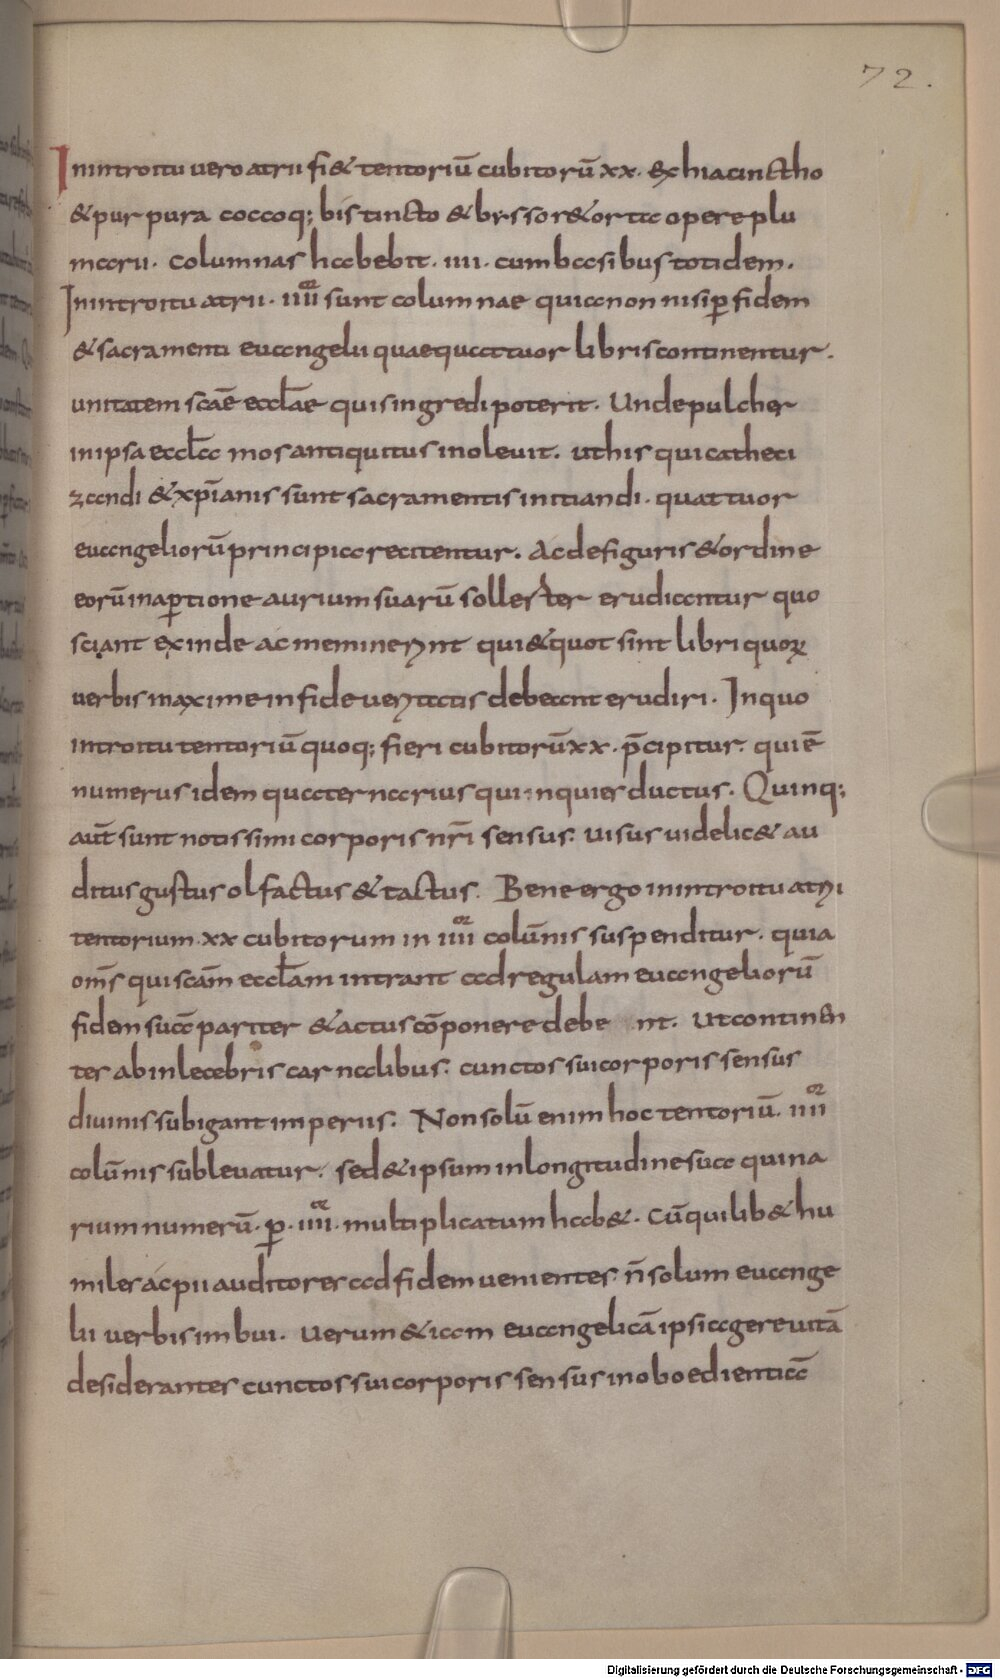 72.
In introitu vero atrii fi& tentoriū cubitorū xx. ex hiacinctho
& purpura coccoq; bis tincto & bysso r&orta opere plu
marii. columnas habebit. iiii. cum basibus totidem.
In introitu atrii. iiii sunt columnae quia non nisi ꝑ fidem
& sacramenti euangelii quae quattuor libris continentur.
unitatem scāe eccl̄ae quis ingredi poterit. Unde pulcher
in ipsa eccl̄a mos antiquitus inoleuit. ut his qui catheci
zandi & xp̄ianis sunt sacramentis initiandi. quattuor
euangeliorū principia recitentur. Ac de figuris & ordine
eorū in aꝑtione aurium suarū sollerter erudiantur quo
sciant exinde ac meminerint qui & quot sint libri quoꝝ
verbis maxime in fide veritatis debeant erudiri. In quo
introitu tentoriū quoq; fieri cubitorū xx. p̄cipitur. qui ē
numerus idem quaternarius quinquies ductus. Quinq;
aut̄ sunt notissimi corporis nr̄i sensus. uisus uidelic& au
ditus gustus olfactus & tactus. Bene ergo in introitu atrii
tentorium xx cubitorum in iiii^or colūnis suspenditur. quia
om̄s qui scām eccl̄am intrant ad regulam euangeliorū
fidem sua pariter & actus cōponere debe nt. ut continen
ter ab inlecebris carnalibus. cunctos sui corporis sensus
diuinis subigant imperiis. Non solū enim hoc tentoriū. iiii^or
colūnis subleuatur. sed & ipsum in longitudine sua quina
rium numerū. ꝑ. iiii. multiplicatum hab&. Cū quilib& hu
miles ac pii auditores ad fidem uenientes n̄ solum euange
lii verbis imbui. verum & iam euangelicā ipsi agere uitā
desiderantes cunctos sui corporis sensus in oboedientia
Digitalisierung gefördert durch die Deutsche Forschungsgemeinschaft - DFG